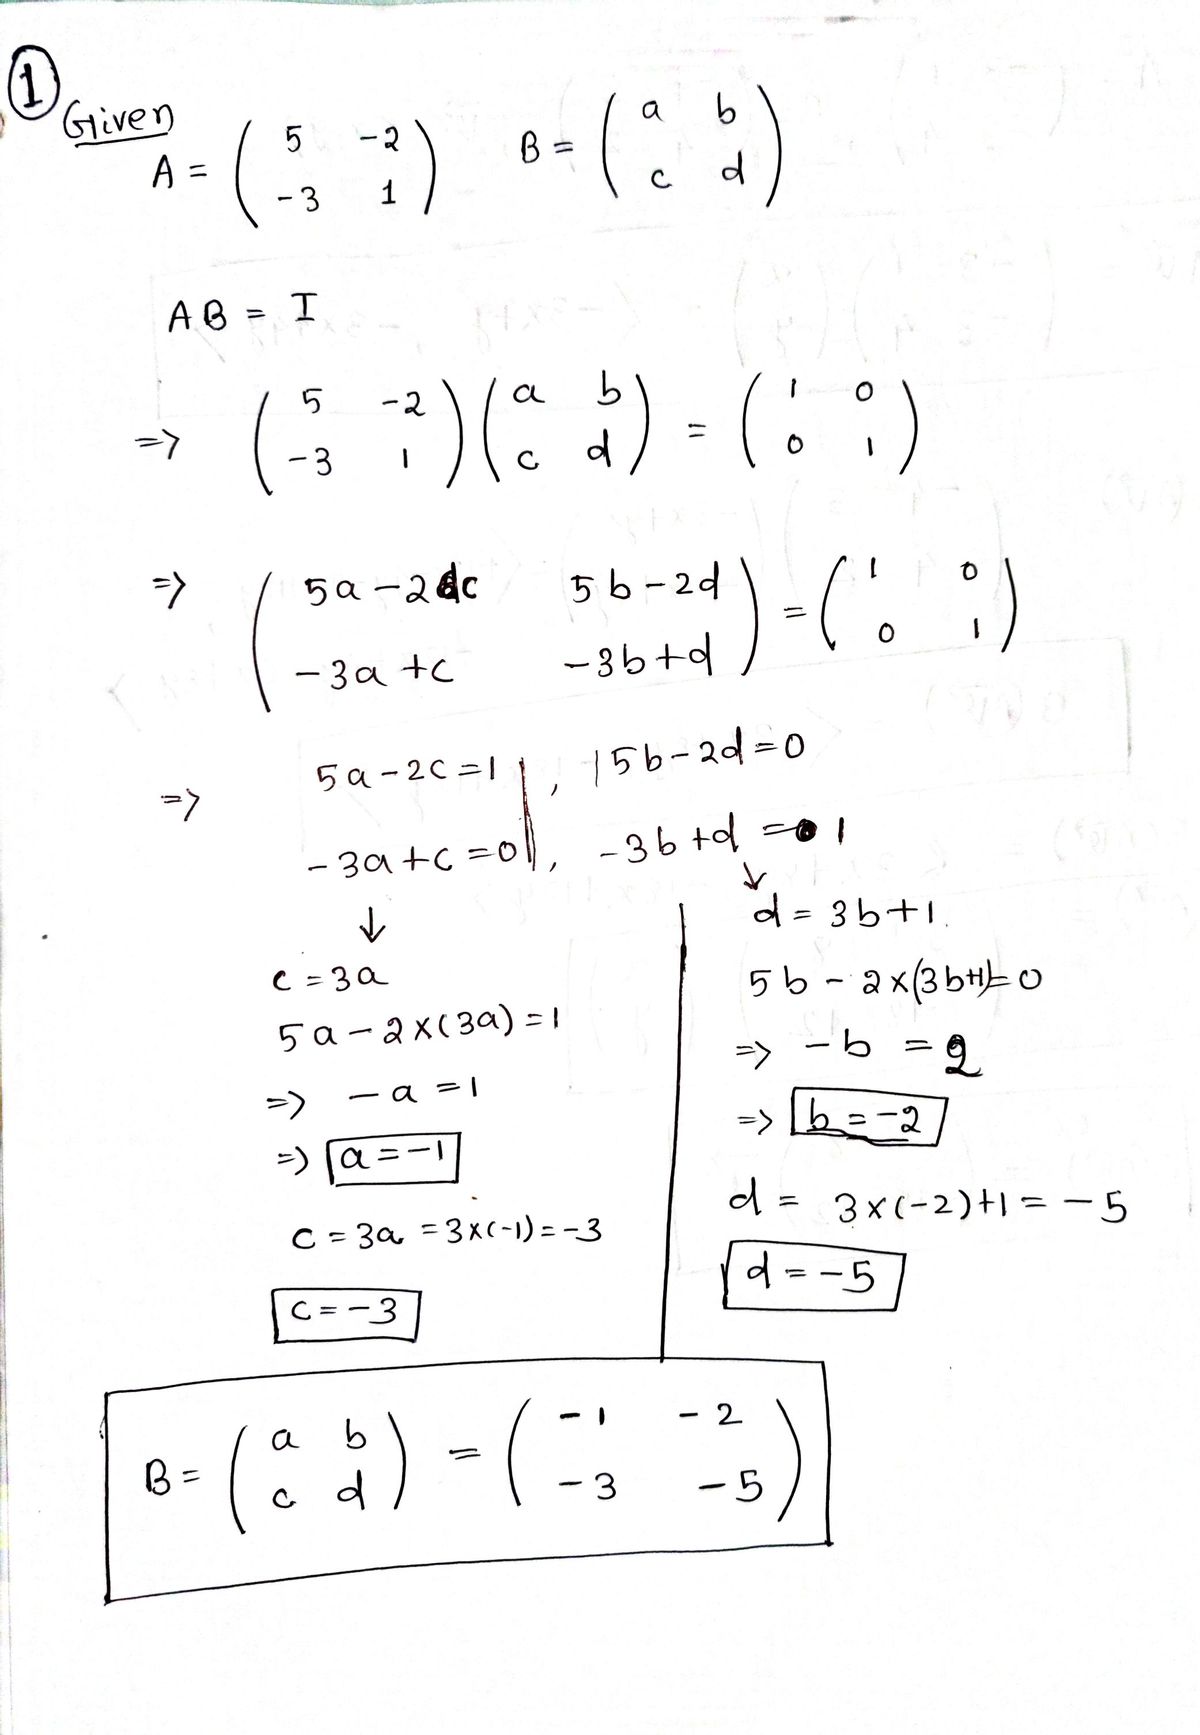 1
Given
A = ( 5 -2
-3 1 ) B = ( a b
c d )
AB = I
=> ( 5 -2
-3 1 ) ( a b
c d ) = ( 1 0
0 1 )
=> ( 5a-2c 5b-2d
-3a+c -3b+d ) = ( 1 0
0 1 )
=> 5a-2c=1 , 5b-2d=0
-3a+c=0 , -3b+d = 1
↓
c = 3a
5a-2×(3a)=1
=> -a=1
=> a=-1
c = 3a = 3×(-1)=-3
c=-3
↓
d = 3b+1.
5b - 2×(3b+1)=0
=> -b = 2
=> b=-2
d = 3×(-2)+1= -5
d=-5
B = ( a b
c d ) = ( -1 -2
-3 -5 )